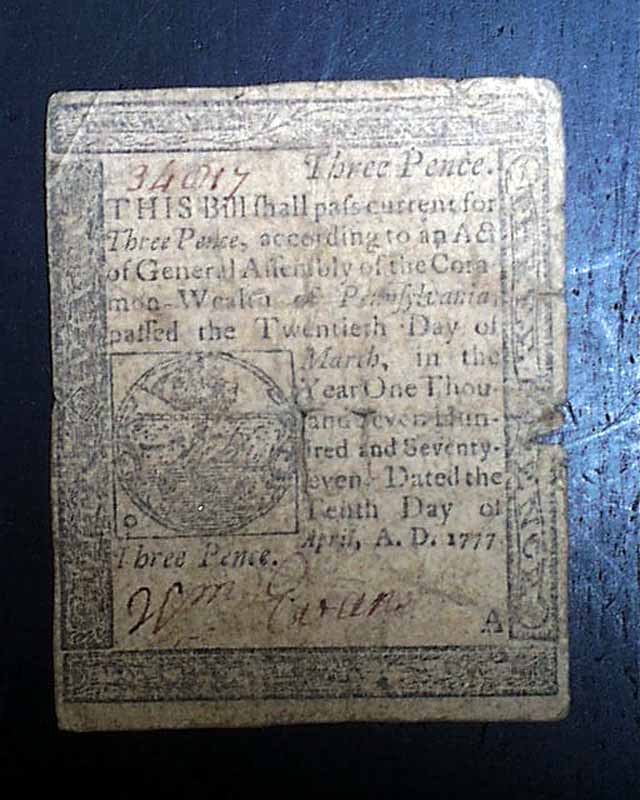 34017 Three Pence.
THIS Bill ſhall paſs current for
Three Pence, according to an Act
of General Aſſembly of the Com-
mon-Wealth of Pennſylvania,
paſſed the Twentieth Day of
March, in the
Year One Thou-
and Seven Hun-
dred and Seventy-
even. Dated the
Tenth Day of
April, A. D. 1777
Three Pence.
Wm
A